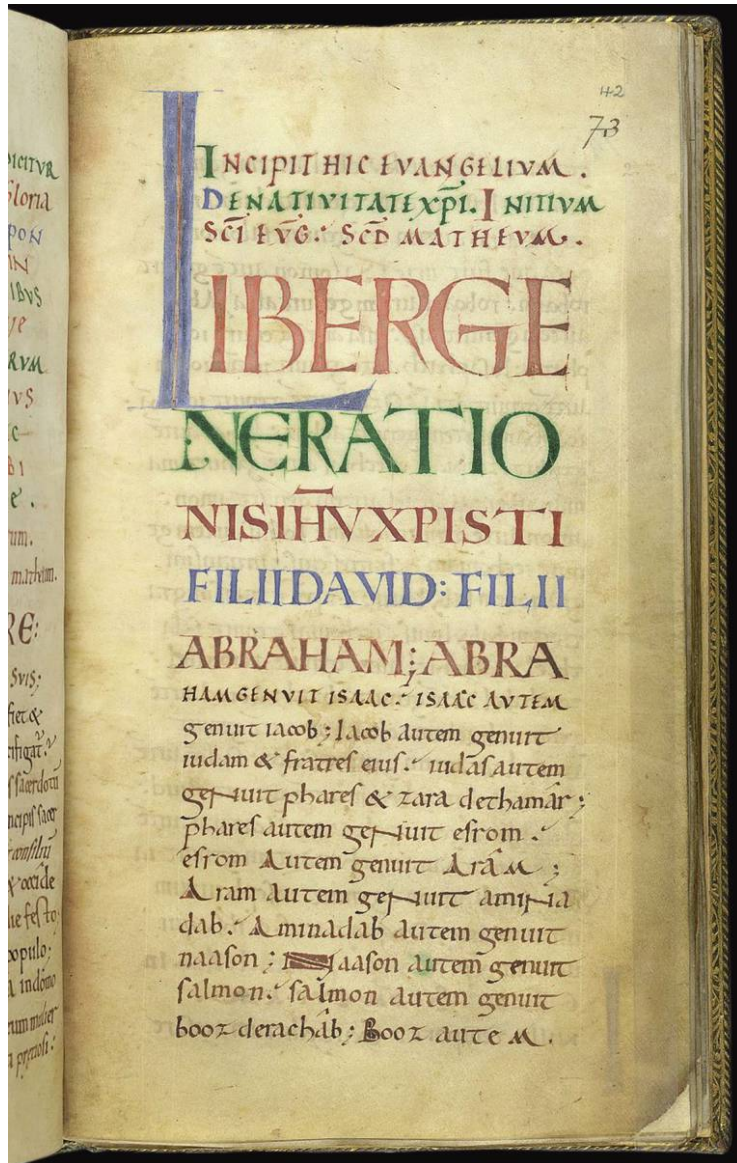 42
73
INCIPIT HIC EVANGELIUM.
DE NATIVITATE XP̄I. INITIUM
SC̄I EVG̅:· SCD̄ MATHEUM.
LIBER GE
NERATIO
NIS IH̅V XPISTI
FILII DAVID: FILII
ABRAHAM; ABRA
HAM GENVIT ISAAC:· ISAAC AVTEM
genuit iacob; Iacob autem genuit
iudam & fratres eius:· iudas autem
genuit phares & zara de thamar;
phares autem genuit esrom:·
esrom Autem genuit ArAM;
Aram autem genuit amina
dab:· Aminadab autem genuit
naason; aason autem genuit
salmon:· salmon autem genuit
booz de rachab; Booz auteM.
DICITVR
Gloria
PON
IN
IBVS
RVM
VS
BI
rum.
RE:
SVIS;
fiet &
sacerdotū
consiliū
& occide
die festo;
populo;
mulier